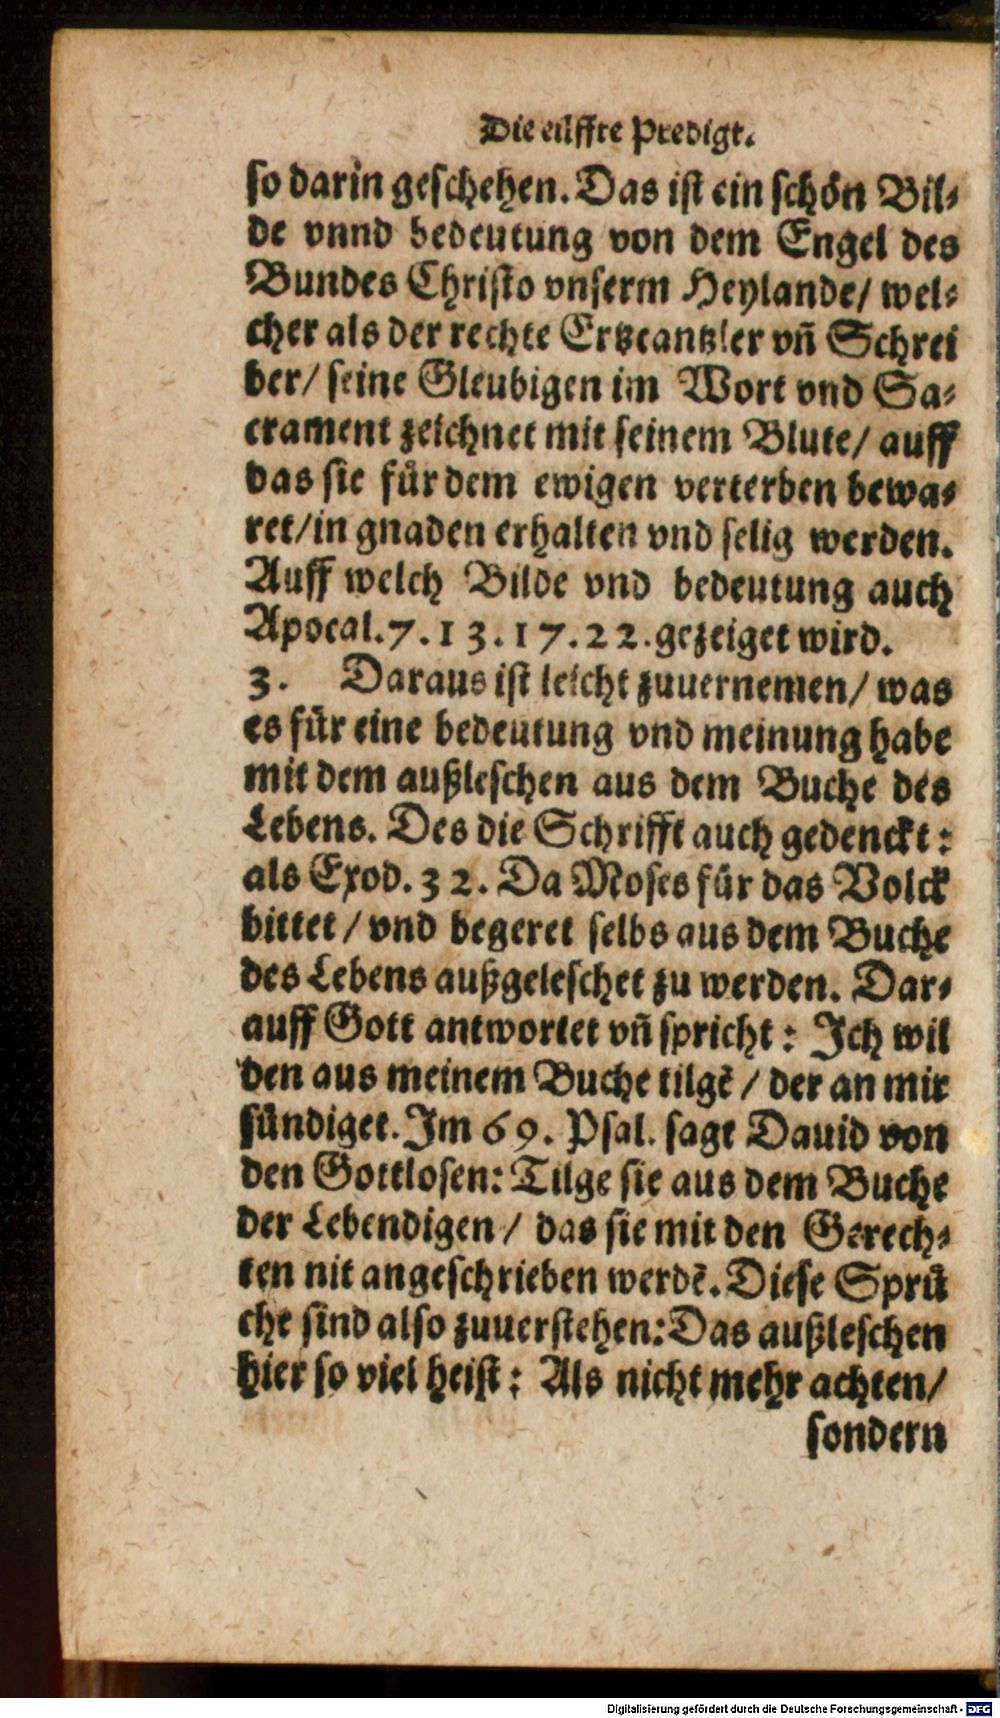 Die eilffte Predigt.
so darin geschehen. Das ist ein schön Bil-
de vnnd bedeutung von dem Engel des
Bundes Christo vnserm Heylande/ wel-
cher als der rechte Ertzcantzler vñ Schrei
ber/ seine Gleubigen im Wort vnd Sa-
crament zeichnet mit seinem Blute/ auff
das sie für dem ewigen verterben bewa-
ret/ in gnaden erhalten vnd selig werden.
Auff welch Bilde vnd bedeutung auch
Apocal. 7. 13. 17. 22. gezeiget wird.
3. Daraus ist leicht zuuernemen/ was
es für eine bedeutung vnd meinung habe
mit dem außleschen aus dem Buche des
Lebens. Des die Schrifft auch gedenckt:
als Exod. 32. Da Moses für das Volck
bittet/ vnd begeret selbs aus dem Buche
des Lebens außgeleschet zu werden. Dar-
auff Gott antwortet vñ spricht: Ich wil
den aus meinem Buche tilgē/ der an mir
sündiget. Im 69. Psal. sagt Dauid von
den Gottlosen: Tilge sie aus dem Buche
der Lebendigen/ das sie mit den Gerech-
ten nit angeschrieben werdē. Diese Sprü
che sind also zuuerstehen: Das außleschen
hier so viel heist: Als nicht mehr achten/
sondern
Digitalisierung gefördert durch die Deutsche Forschungsgemeinschaft - DFG